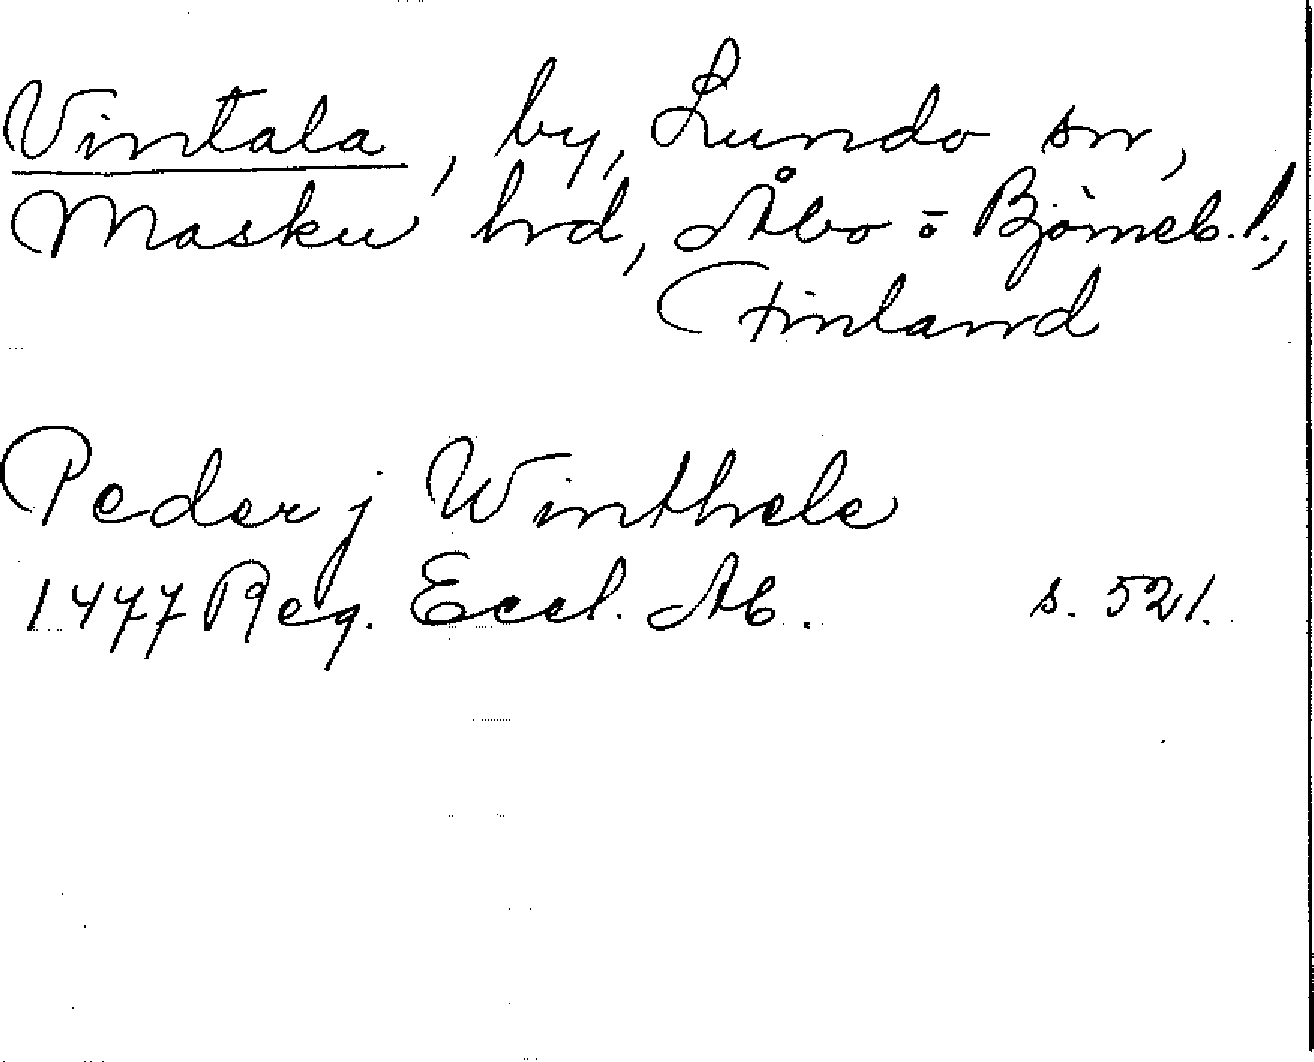 Vintala, by, Lundo sn,
Masku hrd, Åbo o Björneb. l.,
Finland
Peder j Winthele
1477 Reg. Eccl. Ab. s. 521.